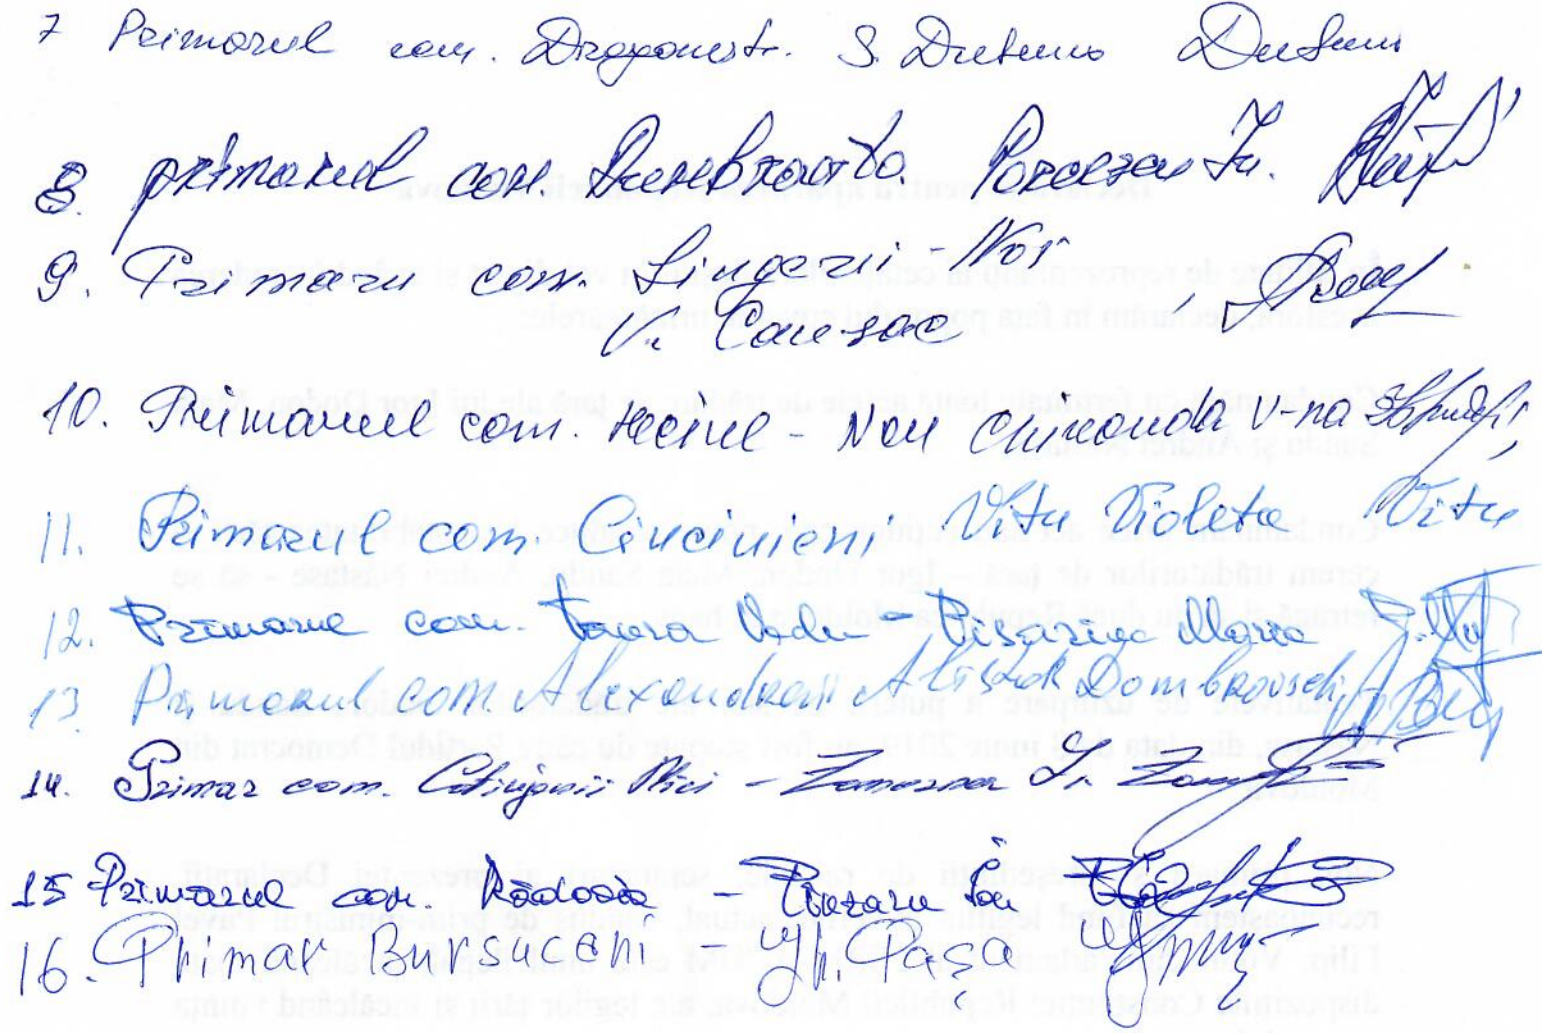 7 Primarul com. Drăgănești. S. Dutuns
8. primarul com. Dumbrăvița.
9. Primaru com. Sîngerii-Noi
V. Causac
10. Primarul com. Heciul-Nou Chironda V-na
11. Primarul com. Ciuciuieni Vitu Violeta Vitu
12. Primarul com. Taura Veche Pisarinc Maria
13. Primarul com. Alexandreni Alistok Dombrovschi
14. Primar com. Coșcodeni Mici - Zamorna
15 Primarul com. Rădoaia - Buzaru Ion
16. Primar Bursuceni - Gh. Pașa